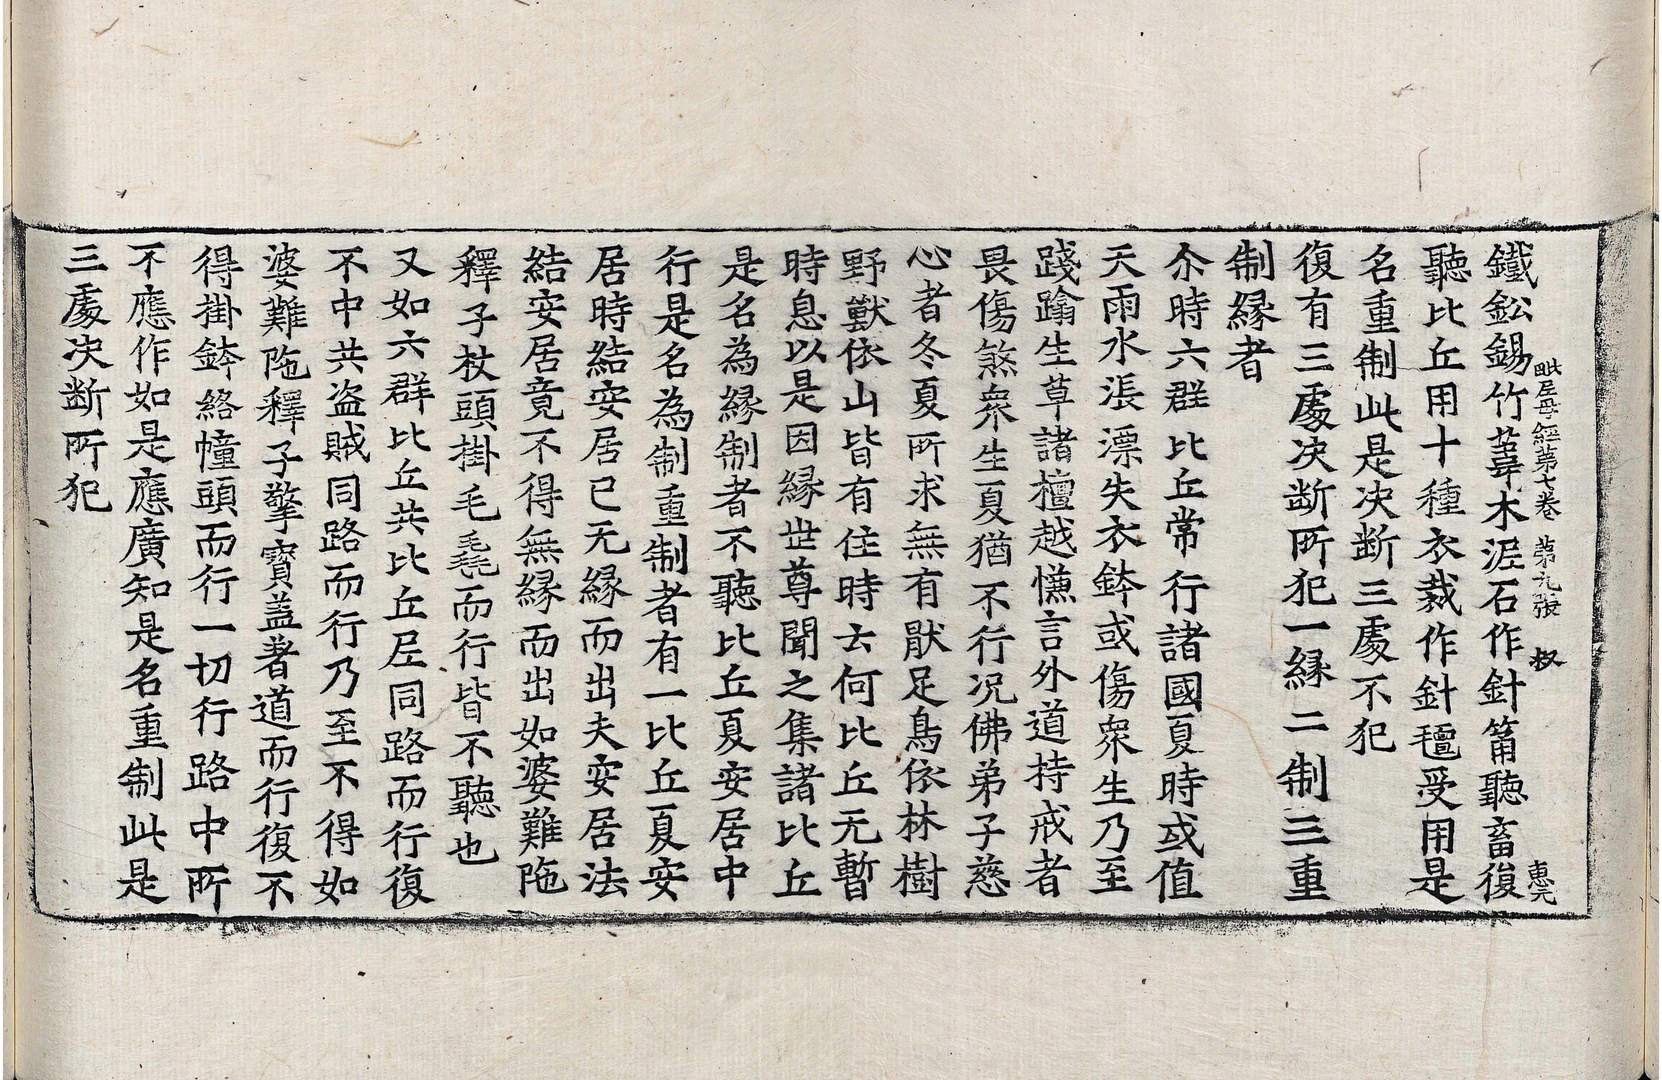 毗尼母經第七卷 第九張 叔 惠元
鐵鈆錫竹葦木泥石作針筩聽畜復
聽比丘用十種衣裁作針氊受用是
名重制此是决断三處不犯
復有三處决断所犯一縁二制三重
制縁者
尒時六群比丘常行諸國夏時或值
天雨水漲漂失衣鉢或傷衆生乃至
踐蹹生草諸檀越慊言外道持戒者
畏傷煞衆生夏猶不行况佛弟子慈
心者冬夏所求無有猒足鳥依林樹
野獸依山皆有住時去何比丘无暫
時息以是因縁世尊聞之集諸比丘
是名為縁制者不聽比丘夏安居中
行是名為制重制者有一比丘夏安
居時結安居已无縁而出夫安居法
結安居竟不得無縁而出如婆難陁
釋子杖頭掛毛毳而行皆不聽也
又如六群比丘共比丘尼同路而行復
不中共盗賊同路而行乃至不得如
婆難陁釋子擎寳盖著道而行復不
得掛鉢絡幢頭而行一切行路中所
不應作如是應廣知是名重制此是
三處决断所犯